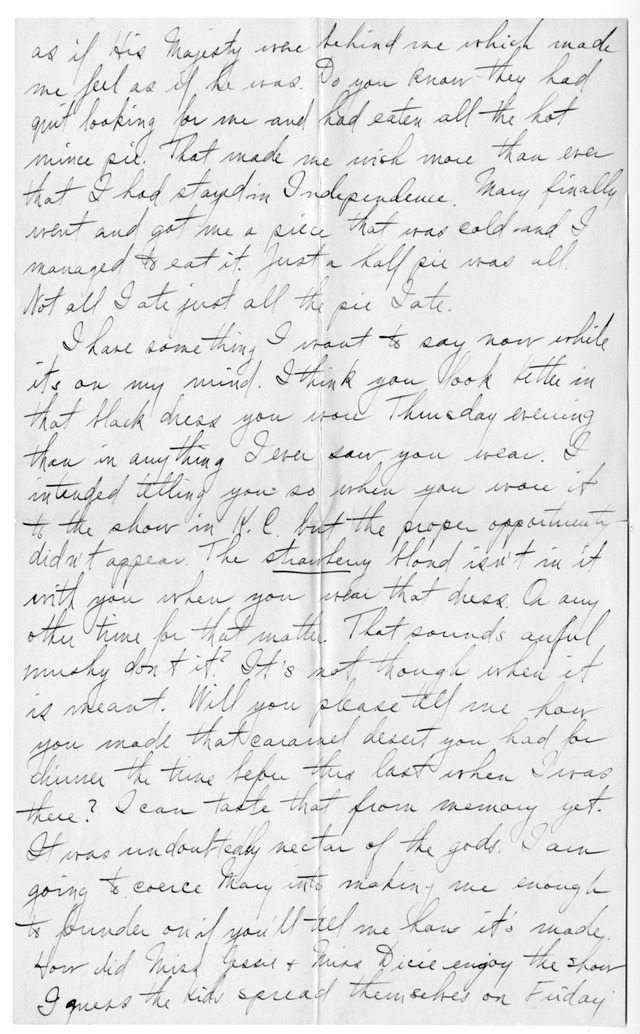 as if His Majesty were behind me which made
me feel as if he was. Do you know they had
quit looking for me and had eaten all the hot
mince pie. That made me wish more than ever
that I had stayed in Independence. Mary finally
went and got me a piece that was cold and I
managed to eat it. Just a half pie was all.
Not all I ate just all the pie I ate.
I have something I want to say now while
it's on my mind. I think you look better in
that black dress you wore Thursday evening
than in anything I ever saw you wear. I
intended telling you so when you wore it
to the show in K.C. but the proper opportunity
didn't appear. The strawberry blond isn't in it
with you when you wear that dress. Or any
other time for that matter. That sounds awful
mushy don't it? It's not though when it
is meant. Will you please tell me how
you made that caramel desert you had for
dinner the time before this last when I was
there? I can taste that from memory yet.
It was undoubtedly nectar of the gods. I am
going to coerce Mary into making me enough
to founder on if you'll tell me how it's made.
How did Miss Jessie & Miss Dicie enjoy the show
I guess the kids spread themselves on Friday